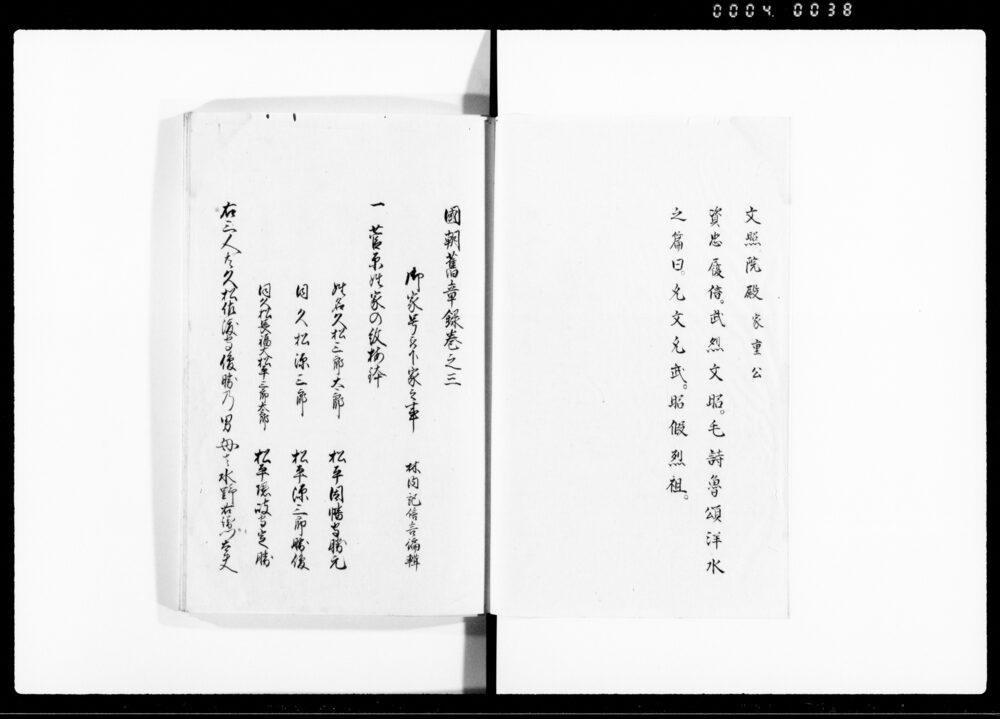 0004 0038
文照院殿家重公
資忠履信。武烈文昭。毛詩魯頌洋水
之篇曰。允文允武。昭假烈祖。
國朝舊章録巻之三
御家号被下家之事 林内記信言編輯
一 菅原姓家の紋梅鉢
姓名久松三郎太郎 松平因幡守勝元
同久松源三郎 松平源三郎勝俊
同久松長福大松平三郎太郎 松平隠岐守定勝
右三人は久松佐渡守俊勝乃男母は水野右衛門太夫